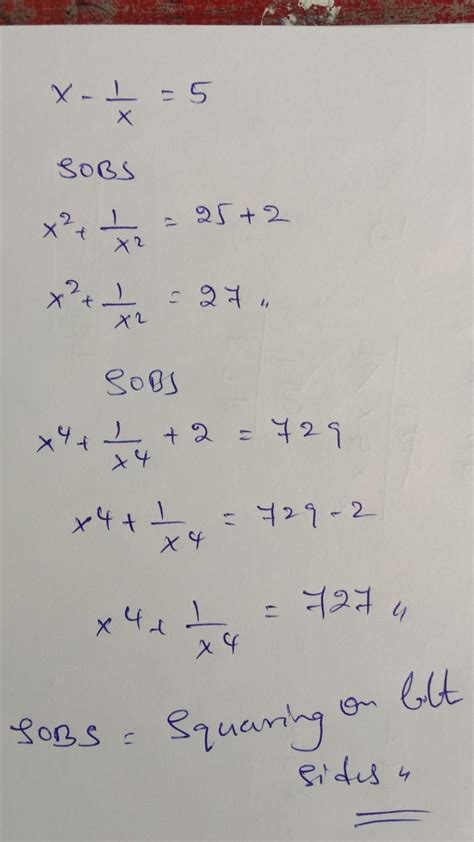 x - 1/x = 5
SOBS
x² + 1/x² = 25 + 2
x² + 1/x² = 27 〃
SOBS
x⁴ + 1/x⁴ + 2 = 729
x⁴ + 1/x⁴ = 729 - 2
x⁴ + 1/x⁴ = 727 〃
SOBS = Squaring on
sides 〃